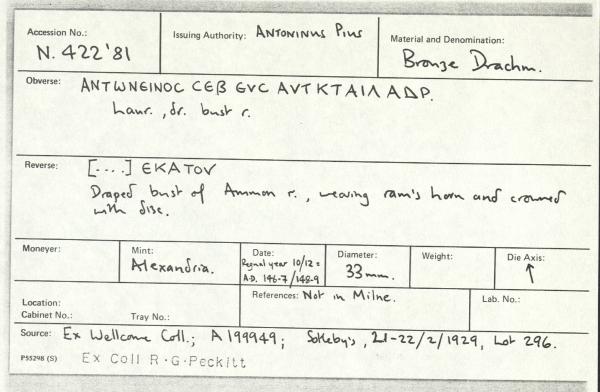 Accession No.:
N. 422'81
Issuing Authority: ANTONINUS PIUS
Material and Denomination:
Bronze Drachm.
Obverse: ΑΝΤΩΝΕΙΝΟC CEB ЄVC AVT K T AIΛ AΔP.
Laur., dr. bust r.
Reverse: [....] EKATOV
Draped bust of Ammon r., wearing ram's horn and crowned
with disc.
Moneyer:
Mint:
Alexandria.
Date:
Regnal year 10/12 =
A.D. 146-7/148-9
Diameter:
33mm.
Weight:
Die Axis:
↑
Location:
Cabinet No.:
Tray No.:
References: Not in Milne.
Lab. No.:
Source: Ex Wellcome Coll.; A199949; Sotheby's, 21-22/2/1929, Lot 296.
P55298 (S)
Ex Coll R.G.Peckitt